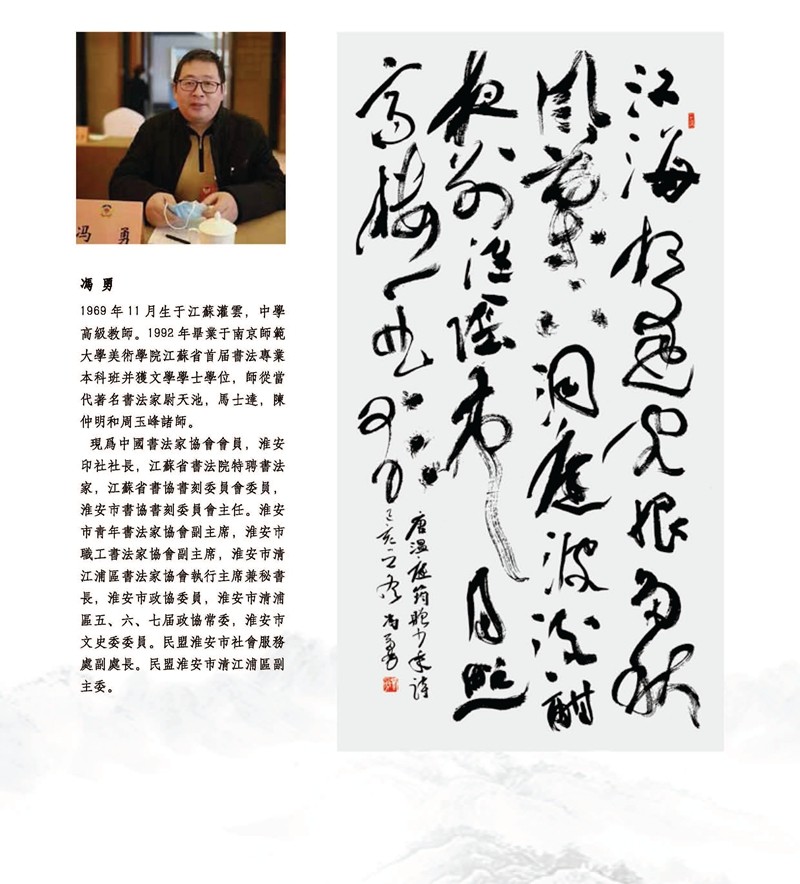 冯 勇
馮 勇
1969 年 11 月生于江蘇灌雲，中學
高級教師。1992 年畢業于南京師範
大學美術學院江蘇省首届書法專業
本科班并獲文學學士學位，師從當
代著名書法家尉天池，馬士達，陳
仲明和周玉峰諸師。
現爲中國書法家協會會員，淮安
印社社長，江蘇省書法院特聘書法
家，江蘇省書協書刻委員會委員，
淮安市書協書刻委員會主任。淮安
市青年書法家協會副主席，淮安市
職工書法家協會副主席，淮安市清
江浦區書法家協會執行主席兼秘書
長，淮安市政協委員，淮安市清浦
區五、六、七届政協常委，淮安市
文史委委員。民盟淮安市社會服務
處副處長。民盟淮安市清江浦區副
主委。
江海相逢客恨多秋
風葉下洞庭波酒酣
夜別淮陰市月照
高樓一曲歌
唐溫庭筠贈少年詩
己亥之 馮勇